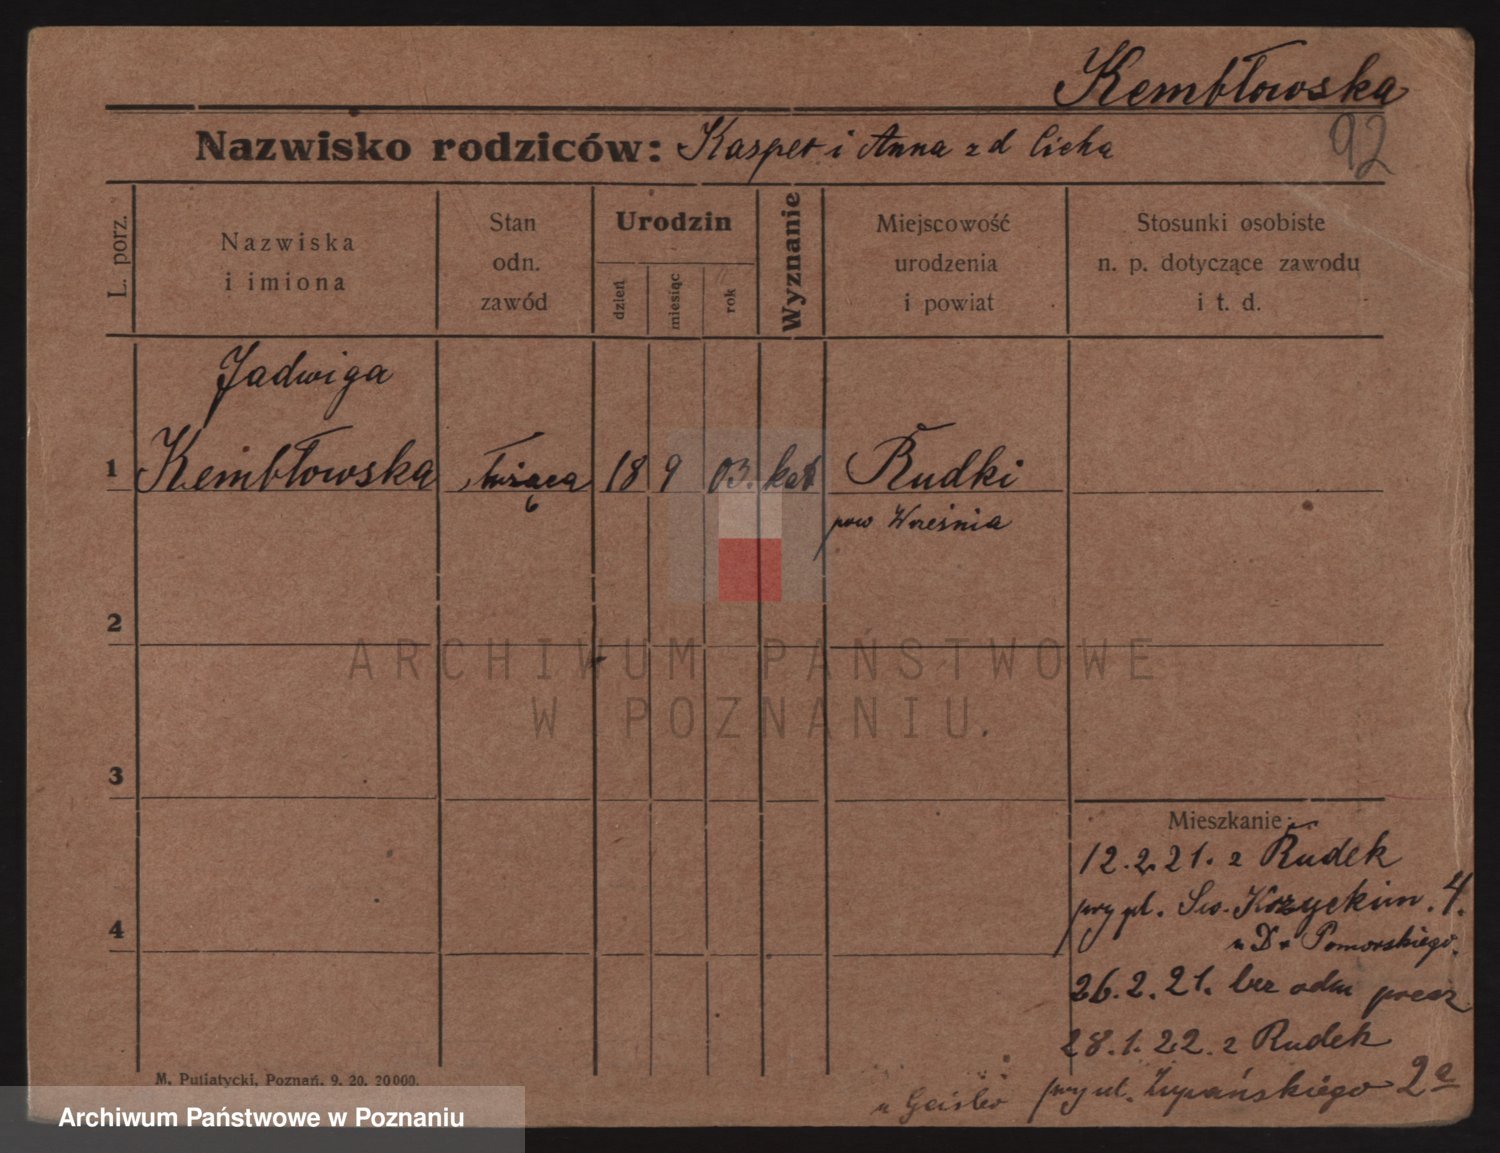 Kembłowska
92
Nazwisko rodziców: Kasper i Anna z d Cicha
L. porz.
Nazwiska
i imiona
Stan
odn.
zawód
Urodzin
dzień
miesiąc
rok
Wyznanie
Miejscowość
urodzenia
i powiat
Stosunki osobiste
n. p. dotyczące zawodu
i t. d.
Jadwiga
1 Kembłowska służąca 18 9 03. kat Rudki
pow Września
2
ARCHIWUM PAŃSTWOWE
W POZNANIU.
3
Mieszkanie:
12.2.21. z Rudek
przy pl. Św. Krzyskim. 4.
u Dr Pomorskiego.
4
26.2.21. bez odm precz
28.1.22. z Rudek
przy ul. Żupańskiego 2a
u Geisler
M. Putiatycki, Poznań. 9. 20. 20000.
Archiwum Państwowe w Poznaniu